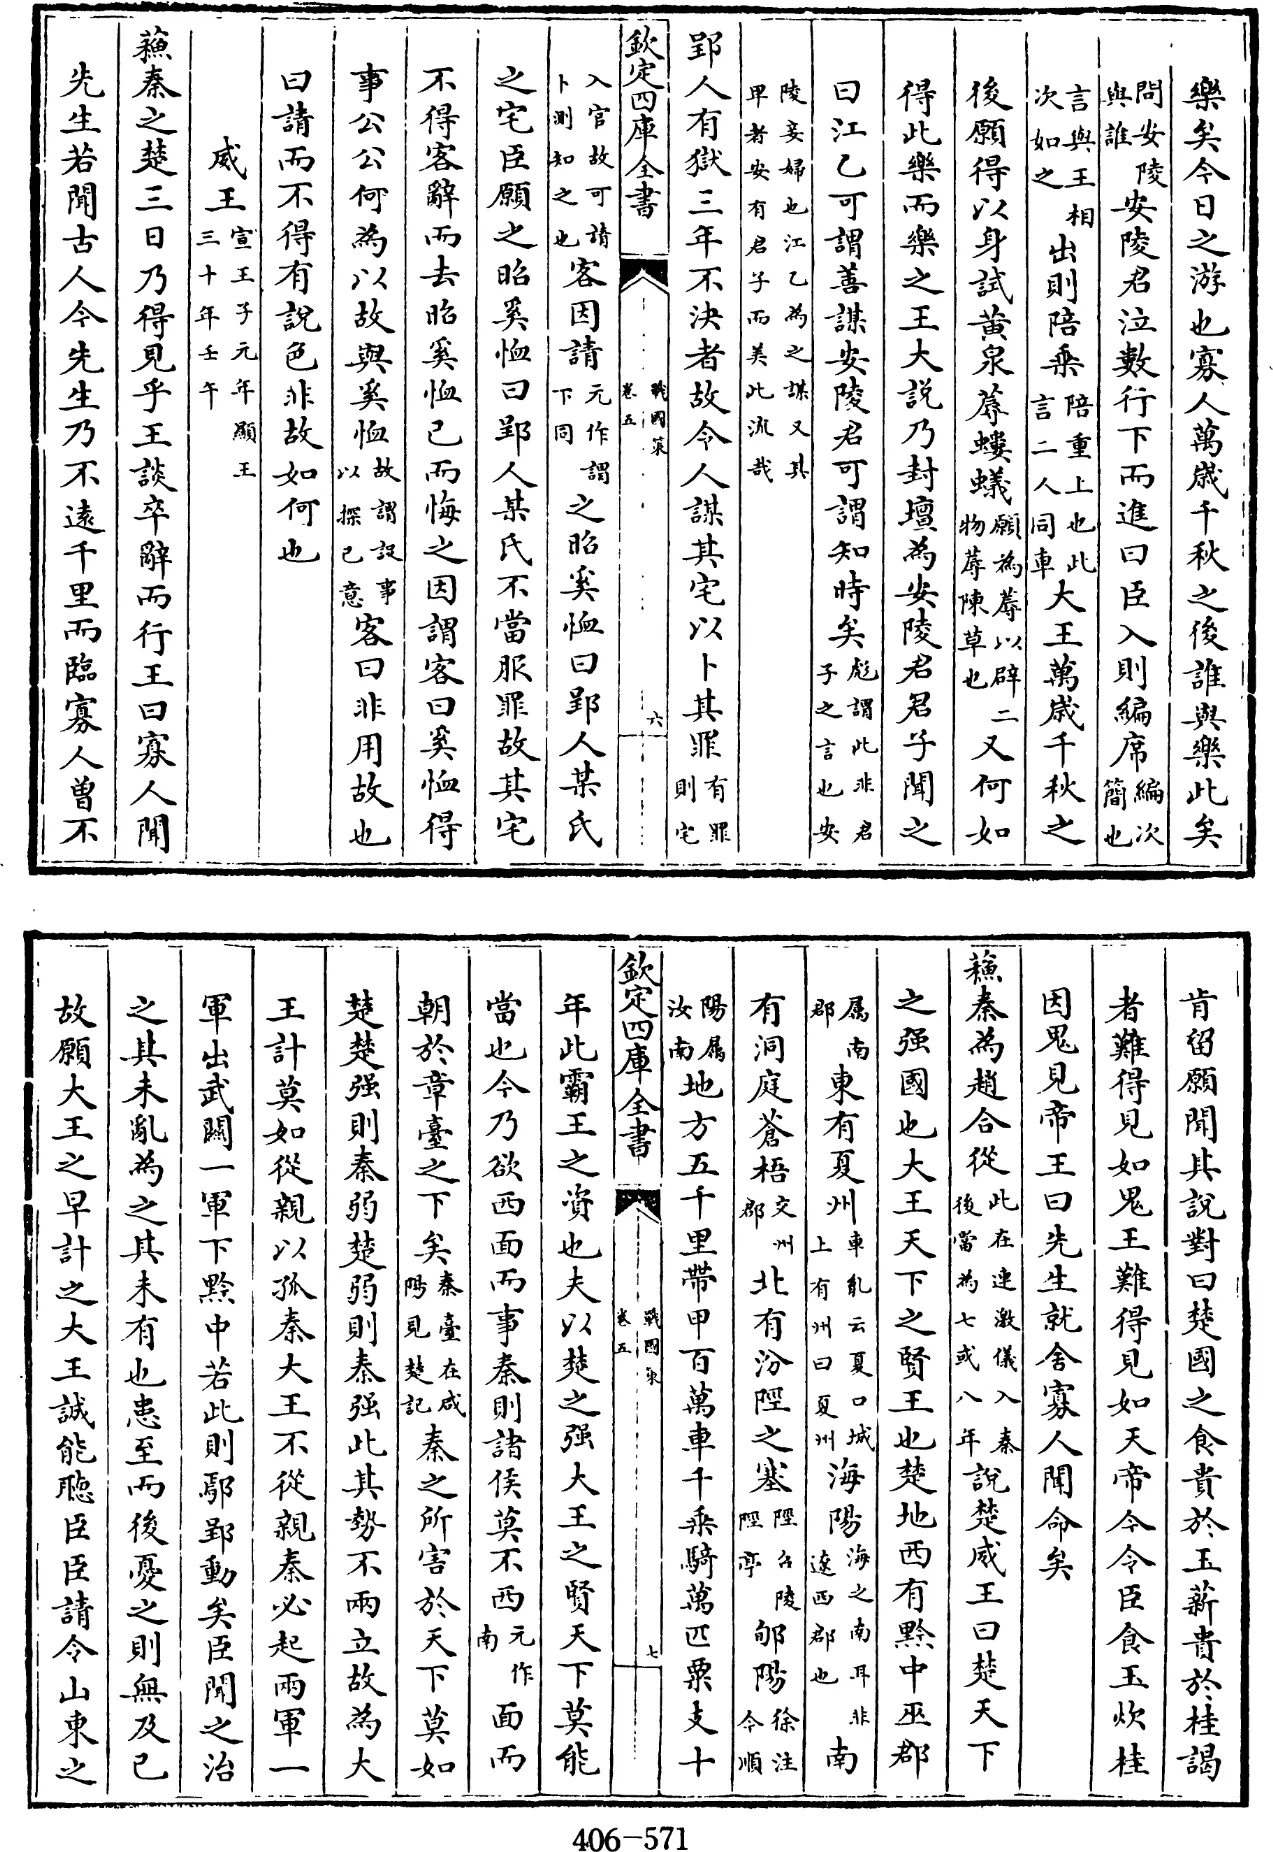 樂矣今日之游也寡人萬歲千秋之後誰與樂此矣
問安陵與誰安陵君泣數行下而進曰臣入則編席編次簡也
言與王相次如之出則陪乘陪重上也此言二人同車大王萬歲千秋之
後願得以身試黃泉蓐螻蟻願為蓐以辟二物蓐陳草也又何如
得此樂而樂之王大說乃封壇為安陵君君子聞之
曰江乙可謂善謀安陵君可謂知時矣彪謂此非君子之言也安
陵妾婦也江乙為之謀又其卑者安有君子而美此流哉
郢人有獄三年不決者故令人謀其宅以卜其罪有罪則宅
欽定四庫全書
戰國策
卷五
六
入官故可請卜測知之也客因請元作謂下同之昭奚恤曰郢人某氏
之宅臣願之昭奚恤曰郢人某氏不當服罪故其宅
不得客辭而去昭奚恤已而悔之因謂客曰奚恤得
事公公何為以故與奚恤故謂設事以探己意客曰非用故也
曰請而不得有說色非故如何也
威王宣王子元年顯王三十年壬午
蘓秦之楚三日乃得見乎王談卒辭而行王曰寡人聞
先生若聞古人今先生乃不遠千里而臨寡人曾不
肯留願聞其說對曰楚國之食貴於玉薪貴於桂謁
者難得見如鬼王難得見如天帝今令臣食玉炊桂
因鬼見帝王曰先生就舍寡人聞命矣
蘓秦為趙合從此在連激儀入秦後當為七或八年說楚威王曰楚天下
之强國也大王天下之賢王也楚地西有黔中巫郡
屬南郡東有夏州車胤云夏口城上有州曰夏州海陽海之南耳非遼西郡也南
有洞庭蒼梧交州郡北有汾陘之塞陘召陵陘亭郇陽徐注今順
陽屬汝南地方五千里帶甲百萬車千乘騎萬匹粟支十
欽定四庫全書
戰國策
卷五
七
年此霸王之資也夫以楚之强大王之賢天下莫能
當也今乃欲西面而事秦則諸侯莫不西元作南面而
朝於章臺之下矣秦臺在咸陽見楚記秦之所害於天下莫如
楚楚强則秦弱楚弱則秦强此其勢不兩立故為大
王計莫如從親以孤秦大王不從親秦必起兩軍一
軍出武關一軍下黔中若此則鄢郢動矣臣聞之治
之其未亂為之其未有也患至而後憂之則無及已
故願大王之早計之大王誠能聽臣臣請令山東之
406-571